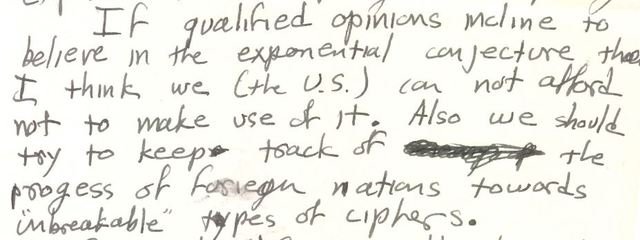 If qualified opinions incline to
believe in the exponential conjecture, then
I think we (the U.S.) can not afford
not to make use of it. Also we should
try to keep track of the
progess of foriegn nations towards
"unbreakable" types of ciphers.